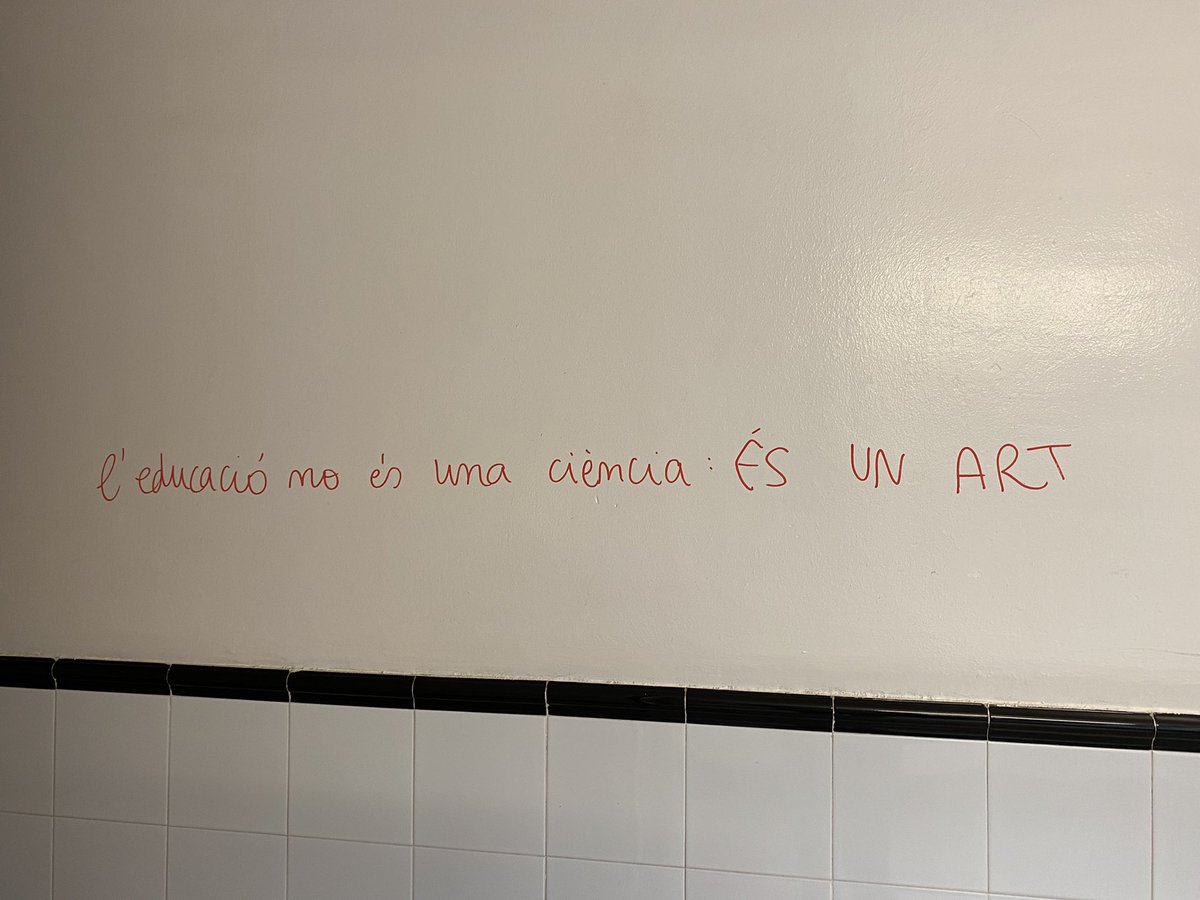 l'educació no és una ciència: ÉS UN ART